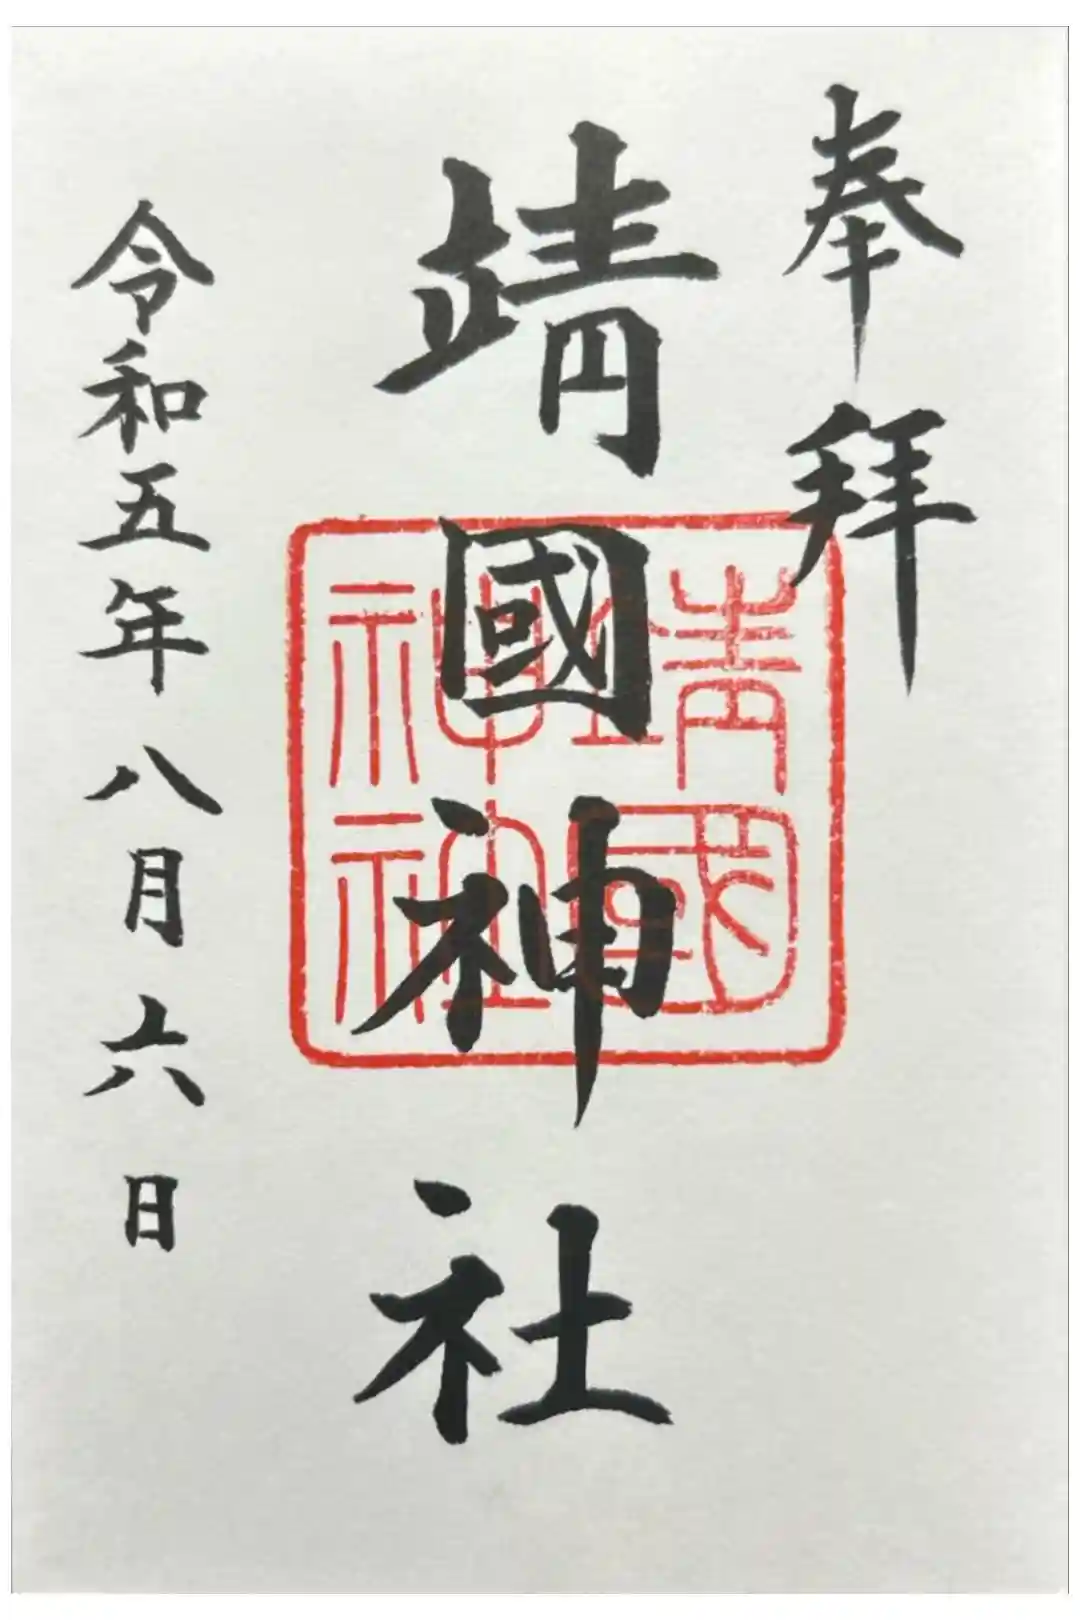 奉拜
靖國神社
靖國
神社
令和五年八月六日